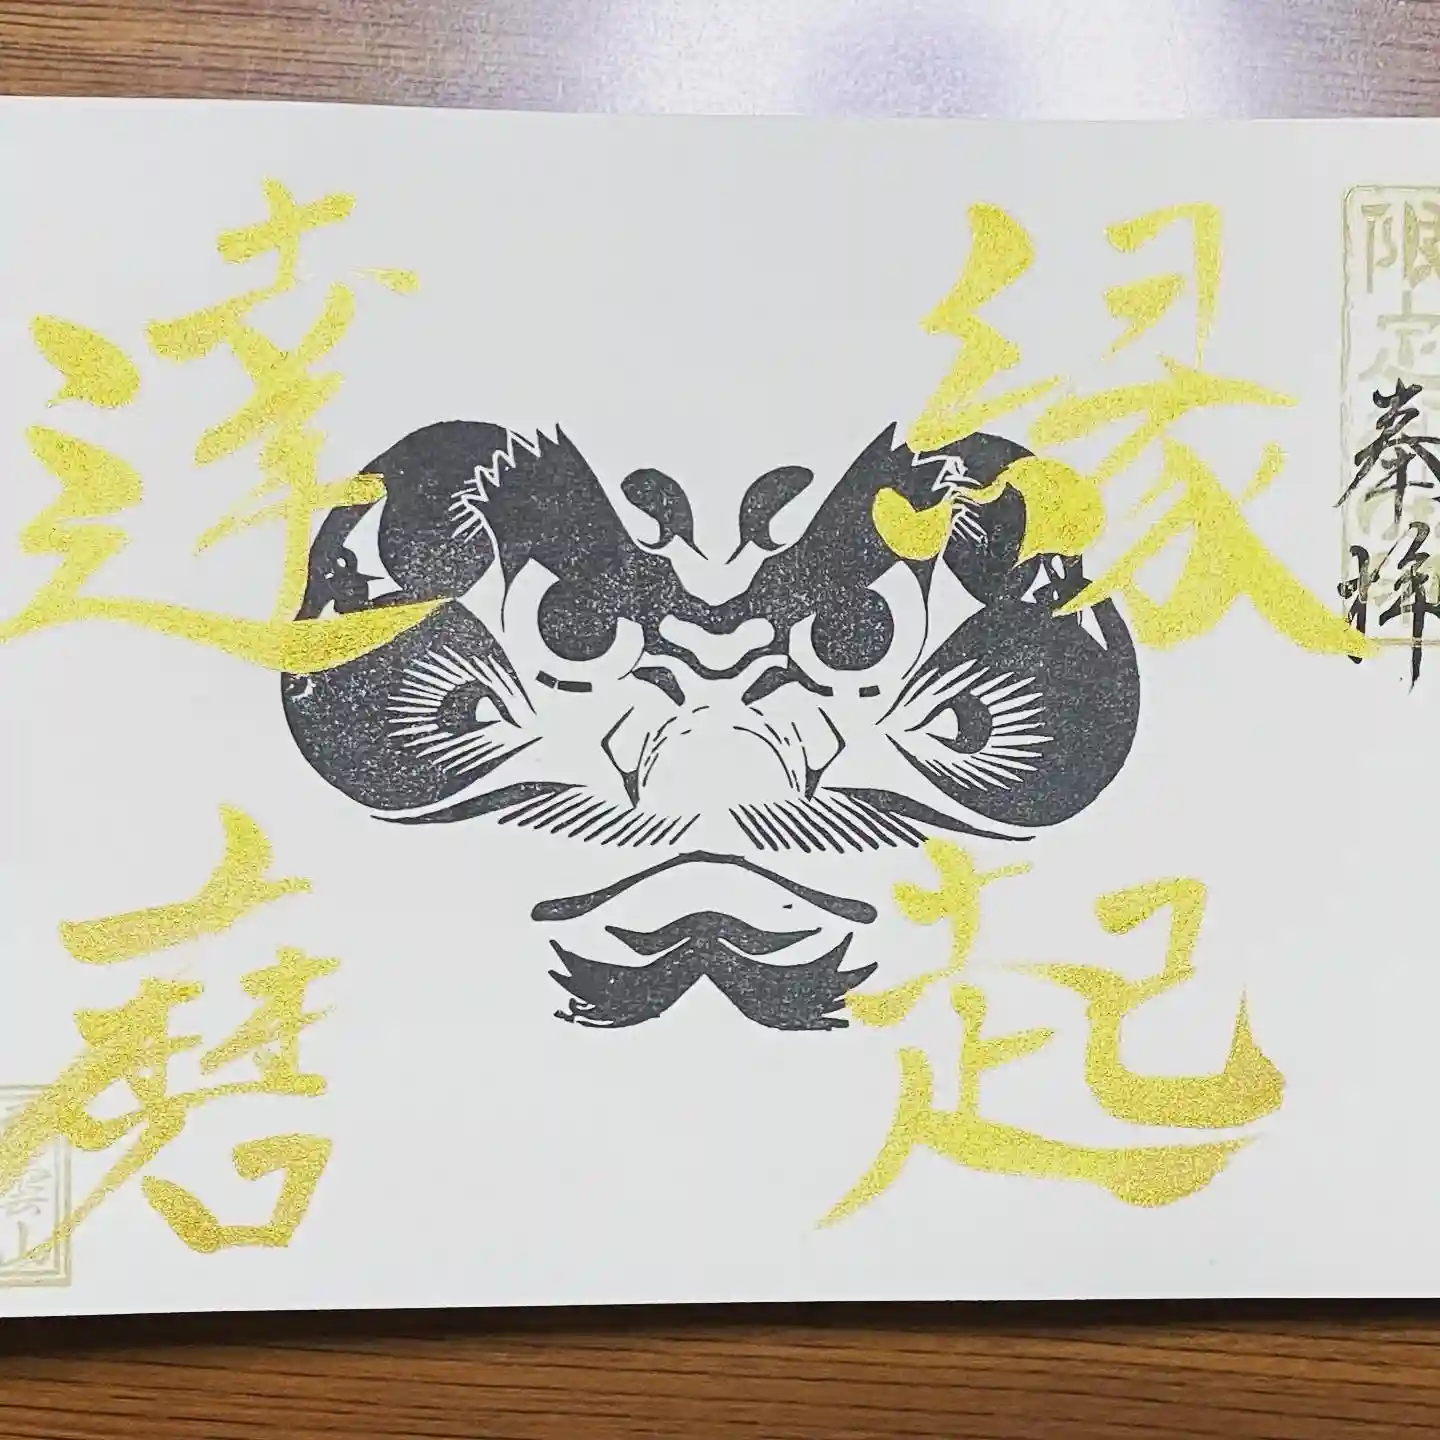 限定
奉拝
縁起
達磨
雲山